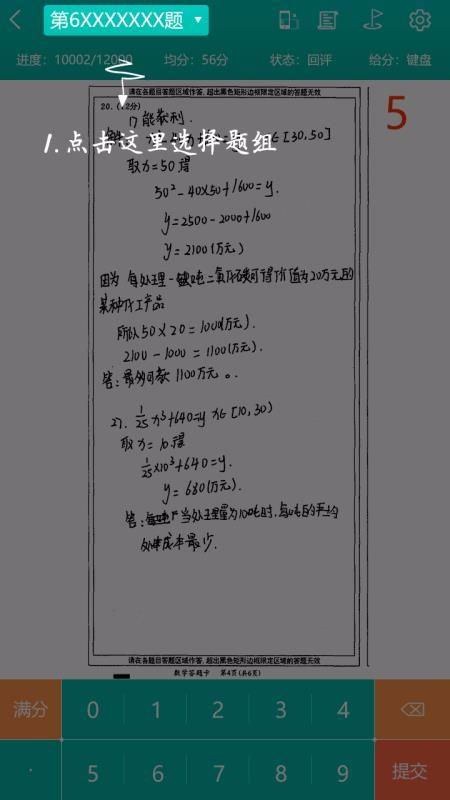 第6XXXXXXX题
进度：10002/12000 均分：56分 状态：回评 给分：键盘
请在各题目答题区域作答，超出黑色矩形边框限定区域的答题无效
5
20.(12分)
1.点击这里选择题组
能获利.
∈[30,50]
取x=50得
50²-40×50+1600=y.
y=2500-2000+1600
y=2100(万元)
因为 每处理一吨二氧化碳可得价值为20万元的
某种化工产品
所以50×20=1000(万元).
2100-1000=1100(万元).
答:最多可获1100万元。
27. 1/25x³+640=y x∈[10,30)
取x=10得
1/25×10³+640=y.
y=680(万元).
答: 当处理量为10吨时,每吨的平均
处理成本最少.
请在各题目答题区域作答，超出黑色矩形边框限定区域的答题无效
数学答题卡 第4页(共6页)
满分 0 1 2 3 4
. 5 6 7 8 9 提交